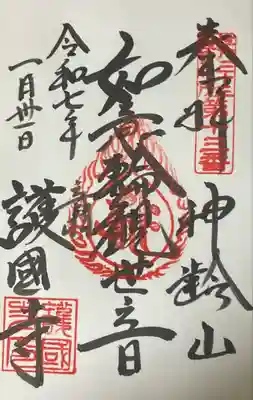 奉拝
神齢山
如意輪観世音
護國寺
令和七年
一月卅一日